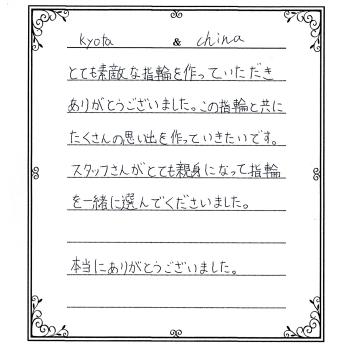 kyota & china
とても素敵な指輪を作っていただき
ありがとうございました。この指輪と共に
たくさんの思い出を作っていきたいです。
スタッフさんがとても親身になって指輪
を一緒に選んでくださいました。
本当にありがとうございました。